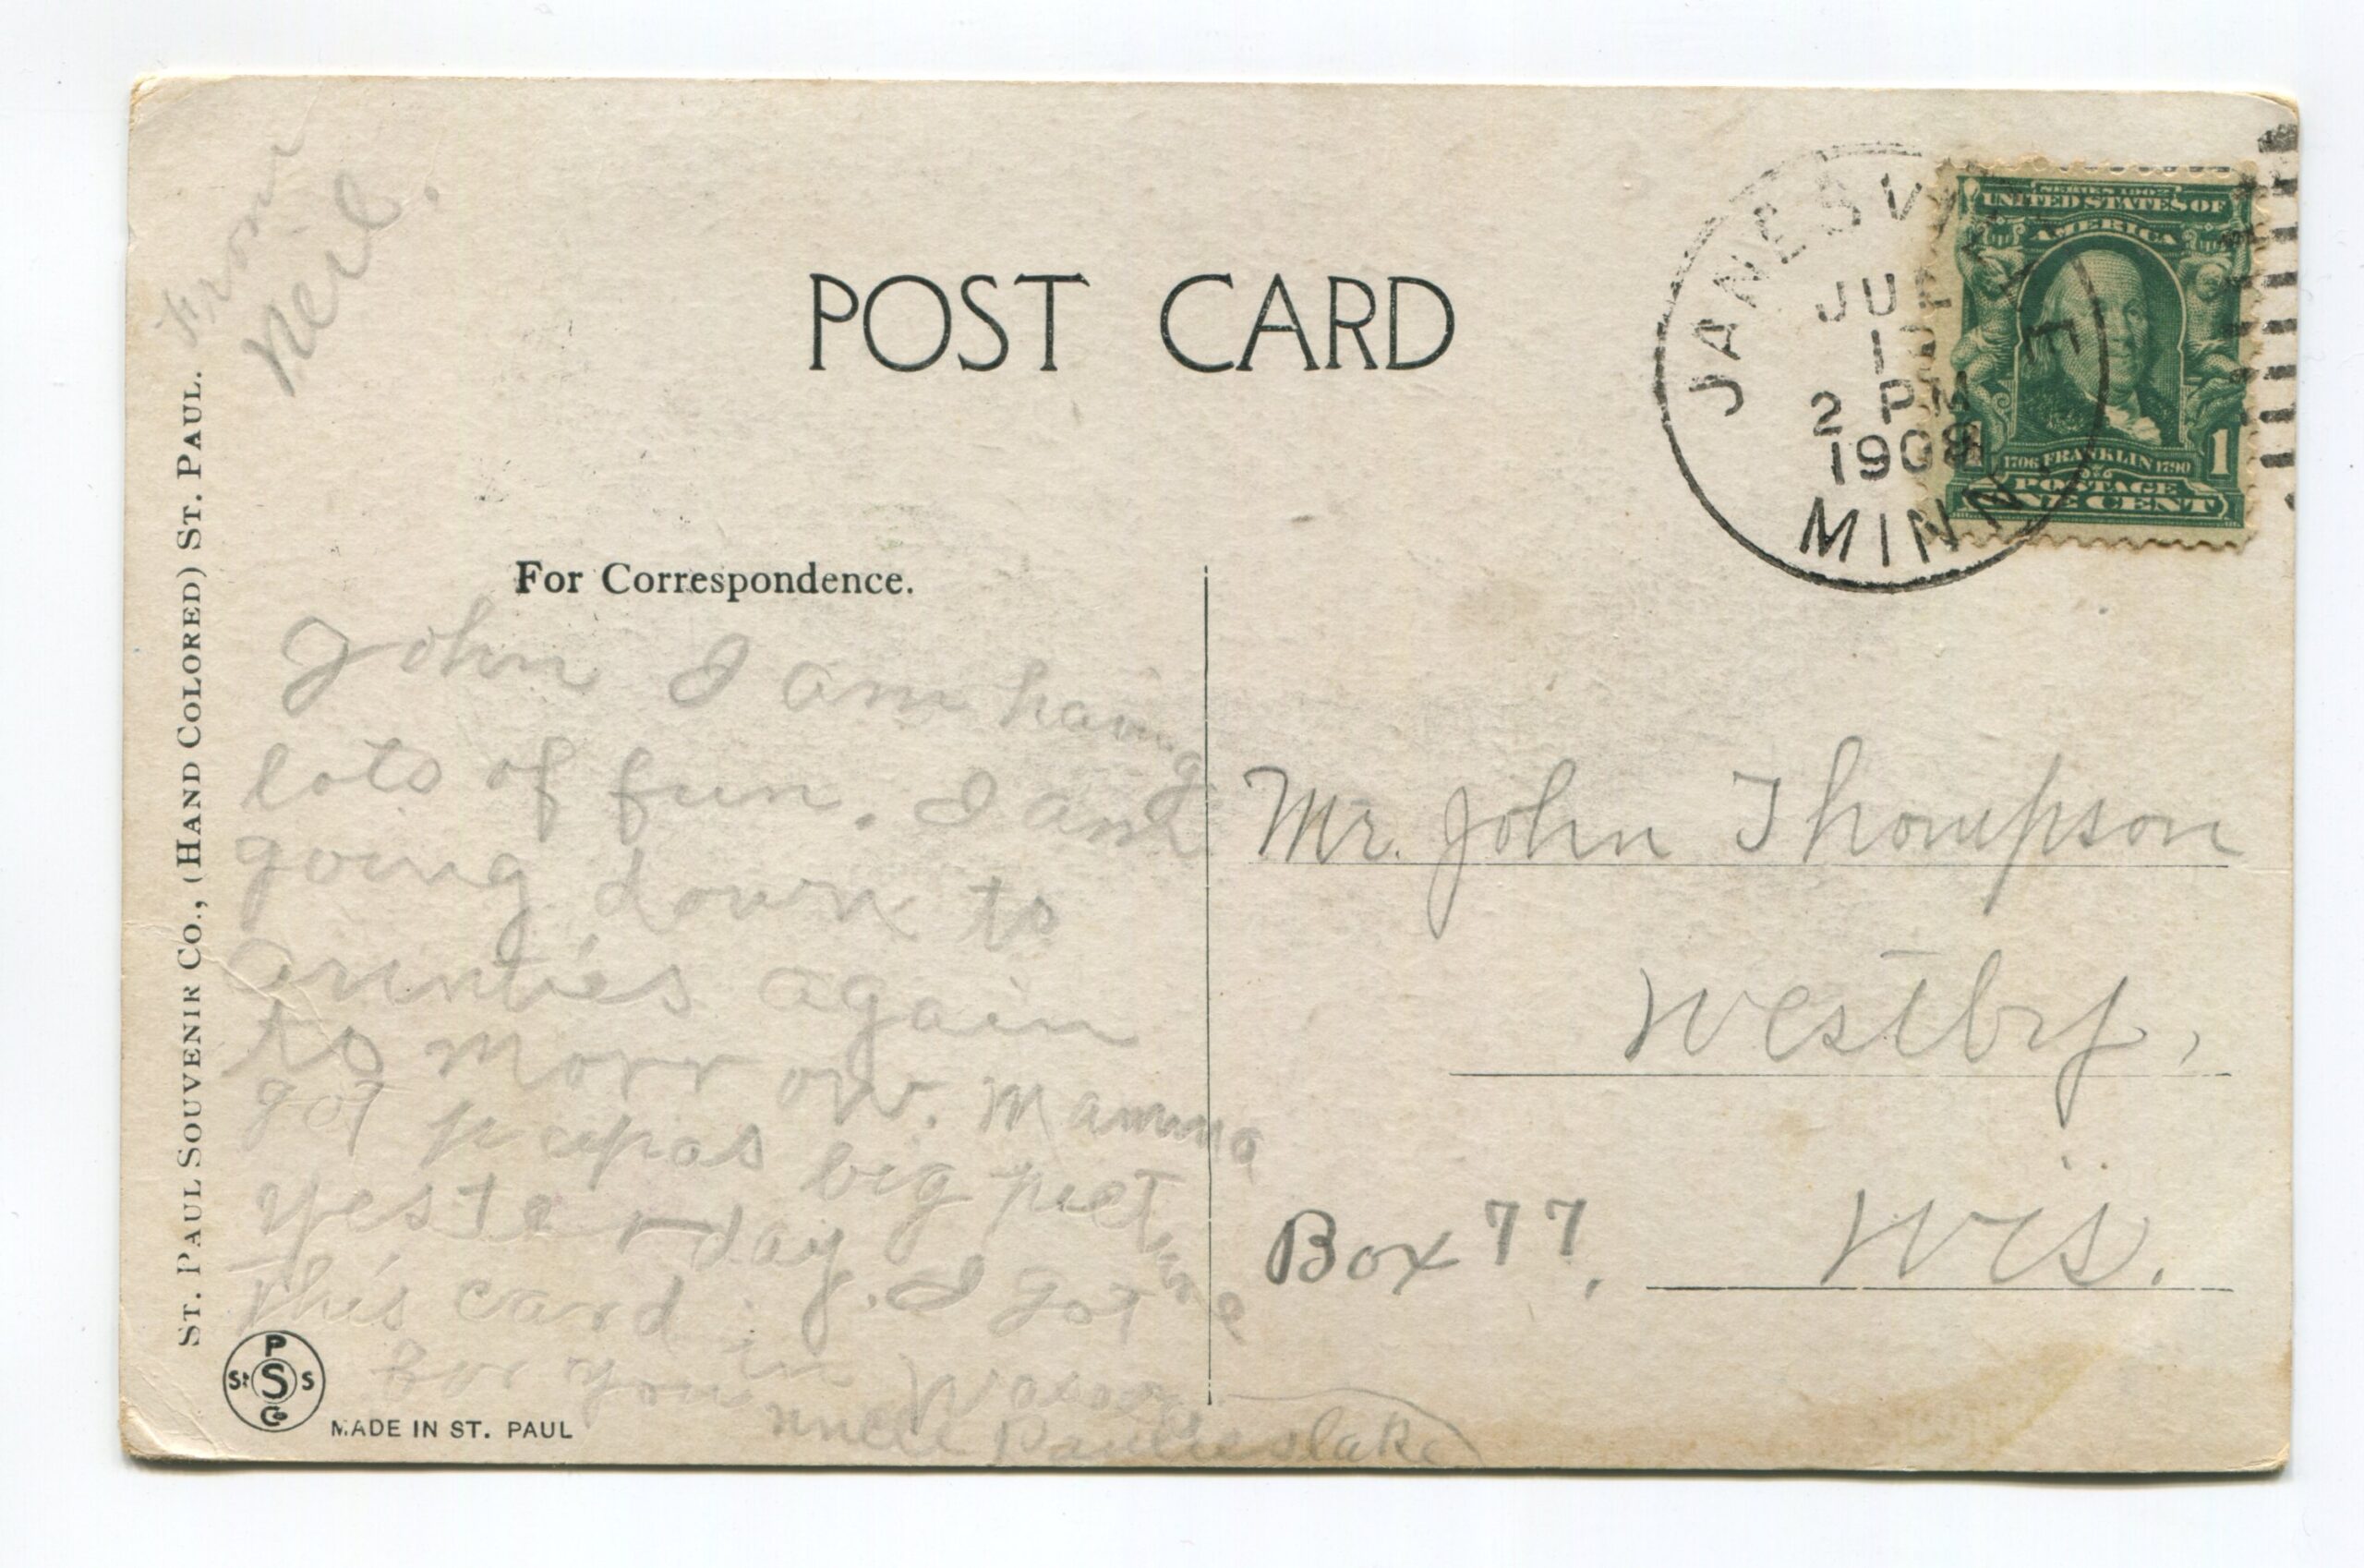 From
Neil.
POST CARD
JANESVILLE
2 PM
1908
MINN
SERIES 1902
UNITED STATES OF
AMERICA
1706 FRANKLIN 1790
POSTAGE
ONE CENT
1
For Correspondence.
John I am having
lots of fun. I am
going down to
aunties again
to morrow. Mamma
got papas big picture
yesterday. I got
this card in
for you
uncle Paulies lake
Mr. John Thompson
Westby,
Box 77, Wis.
ST. PAUL SOUVENIR CO., (HAND COLORED) ST. PAUL.
P
St S S
Co
MADE IN ST. PAUL